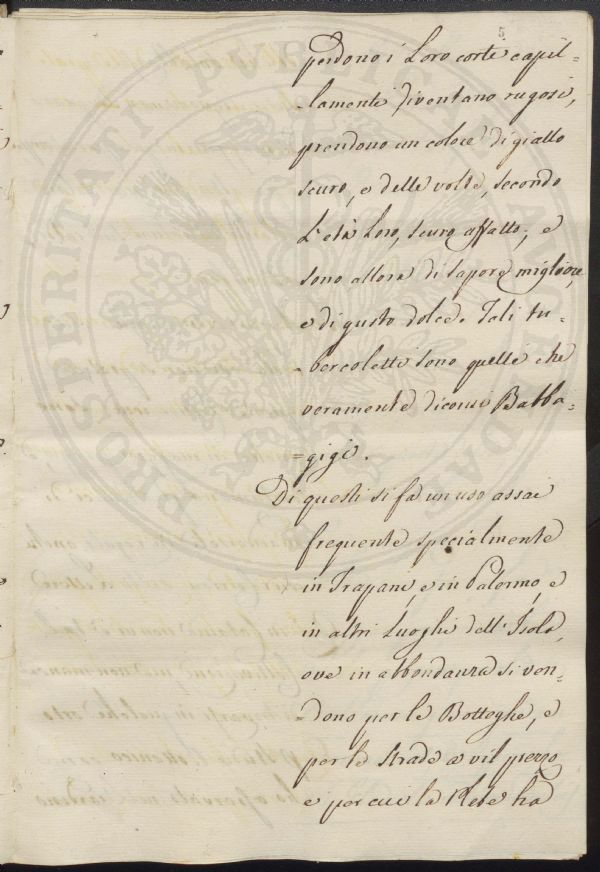 5
perdono i Loro corte capil=
=lamente diventano rugosi,
prendono un colore di giallo
scuro, e delle volte, secondo
L'età Loro, scuro affatto; e
sono allora di sapore migliore,
e di gusto dolce. Tali tu=
=bercoletti sono quelli che
veramente diconsi Babba=
=gigi.
Di questi si fa un uso assai
frequente specialmente
in Trapani, e in Palermo, e
in altri Luoghi dell'Isola,
ove in abbondanza si ven=
=dono per le Botteghe, e
per le Strade a vil prezzo
e per cui la Plebe ha
PROSPERITATI PUBLICAE AUGENDAE